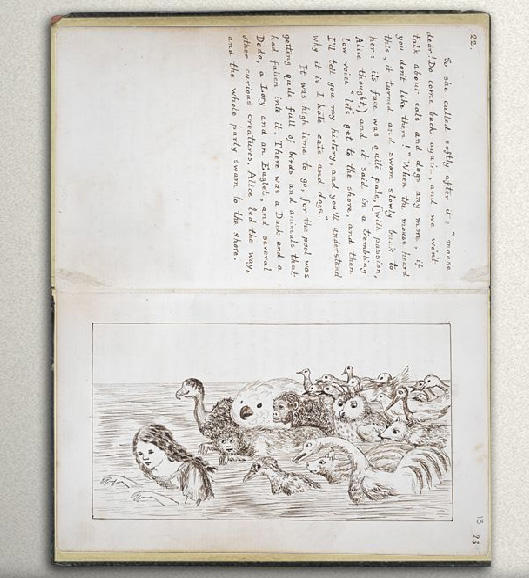 22.
So she called softly after it: "mouse
dear! Do come back again, and we won't
talk about cats and dogs any more, if
you don't like them!" When the mouse heard
this, it turned and swam slowly back to
her: its face was quite pale, (with passion,
Alice thought,) and it said in a trembling
low voice "let's get to the shore, and then
I'll tell you my history, and you'll understand
why it is I hate cats and dogs."
It was high time to go, for the pool was
getting quite full of birds and animals that
had fallen into it. There was a Duck and a
Dodo, a Lory and an Eaglet, and several
other curious creatures. Alice led the way,
and the whole party swam to the shore.
15
23